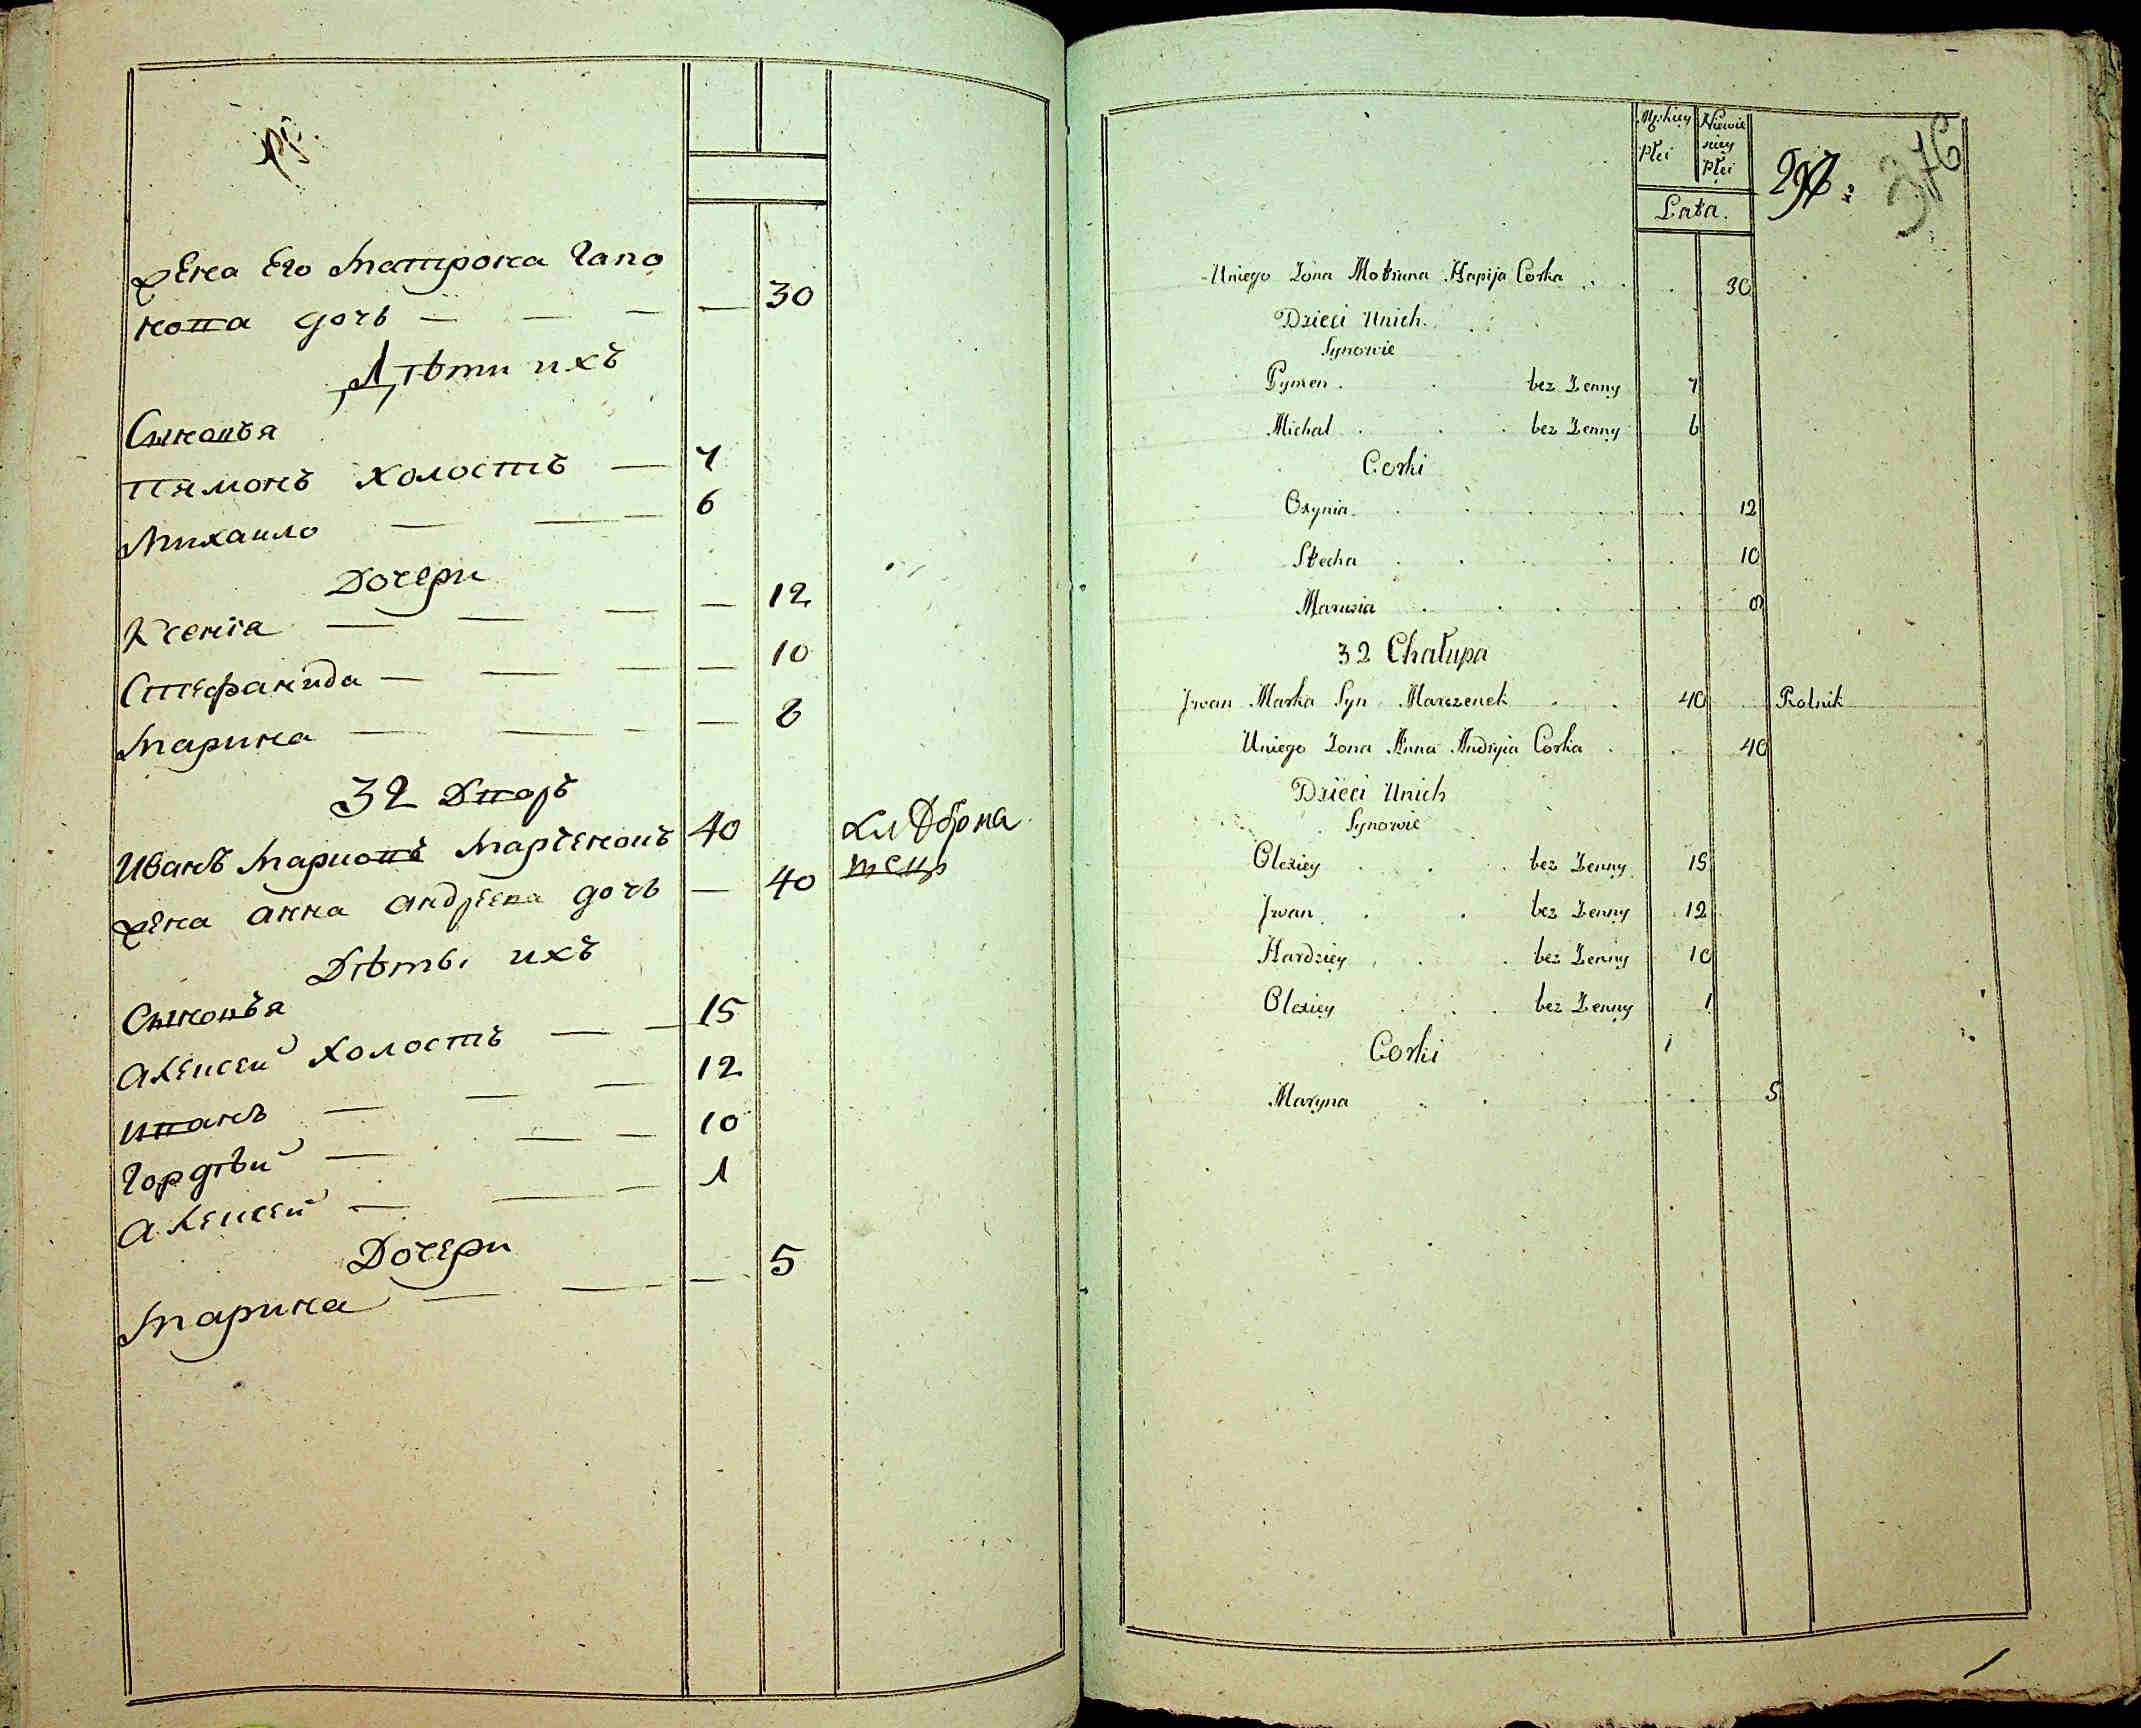 Жена Его Матрона Гапо
нова дочь — — — — 30
Дѣти ихъ
Сыновья
Пимонъ холостъ — 7
Михаило — — 6
Дочери
Ксенїа — — — — 12
Стефанида — — — — 10
Марина — — — — 8
32 Дворъ
Иванъ Марковъ Марченокъ 40
жена анна андреева дочь — 40
Дѣты ихъ
Сыновья
алексей холостъ — — 15
иванъ — — — 12
Гордѣй — — — 10
алексей — — — 1
Дочери
Марина — — — 5
Męskiey Płci
Niewieściey Płci
376
Lata.
Uniego Zona Motruna Hapija Corka . . . 30
Dzieci Unich.
Synowie
Pymen . . bez Zenny 7
Michal . . . bez Zenny 6
Corki
Oxynia . . . . . 12
Stecha . . . . . 10
Marusia . . . . . 8
32 Chałupa
Jwan Marka Syn Marczenek . . 40 Rolnik
Uniego Zona Anna Andryia Corka . . 40
Dzieci Unich
Synowie
Olexiey . . . bez Zenny 15
Jwan . . bez Zenny 12
Hardziey . . . bez Zenny 10
Olexiey . . . bez Zenny 1
Corki
Maryna . . . . . 5